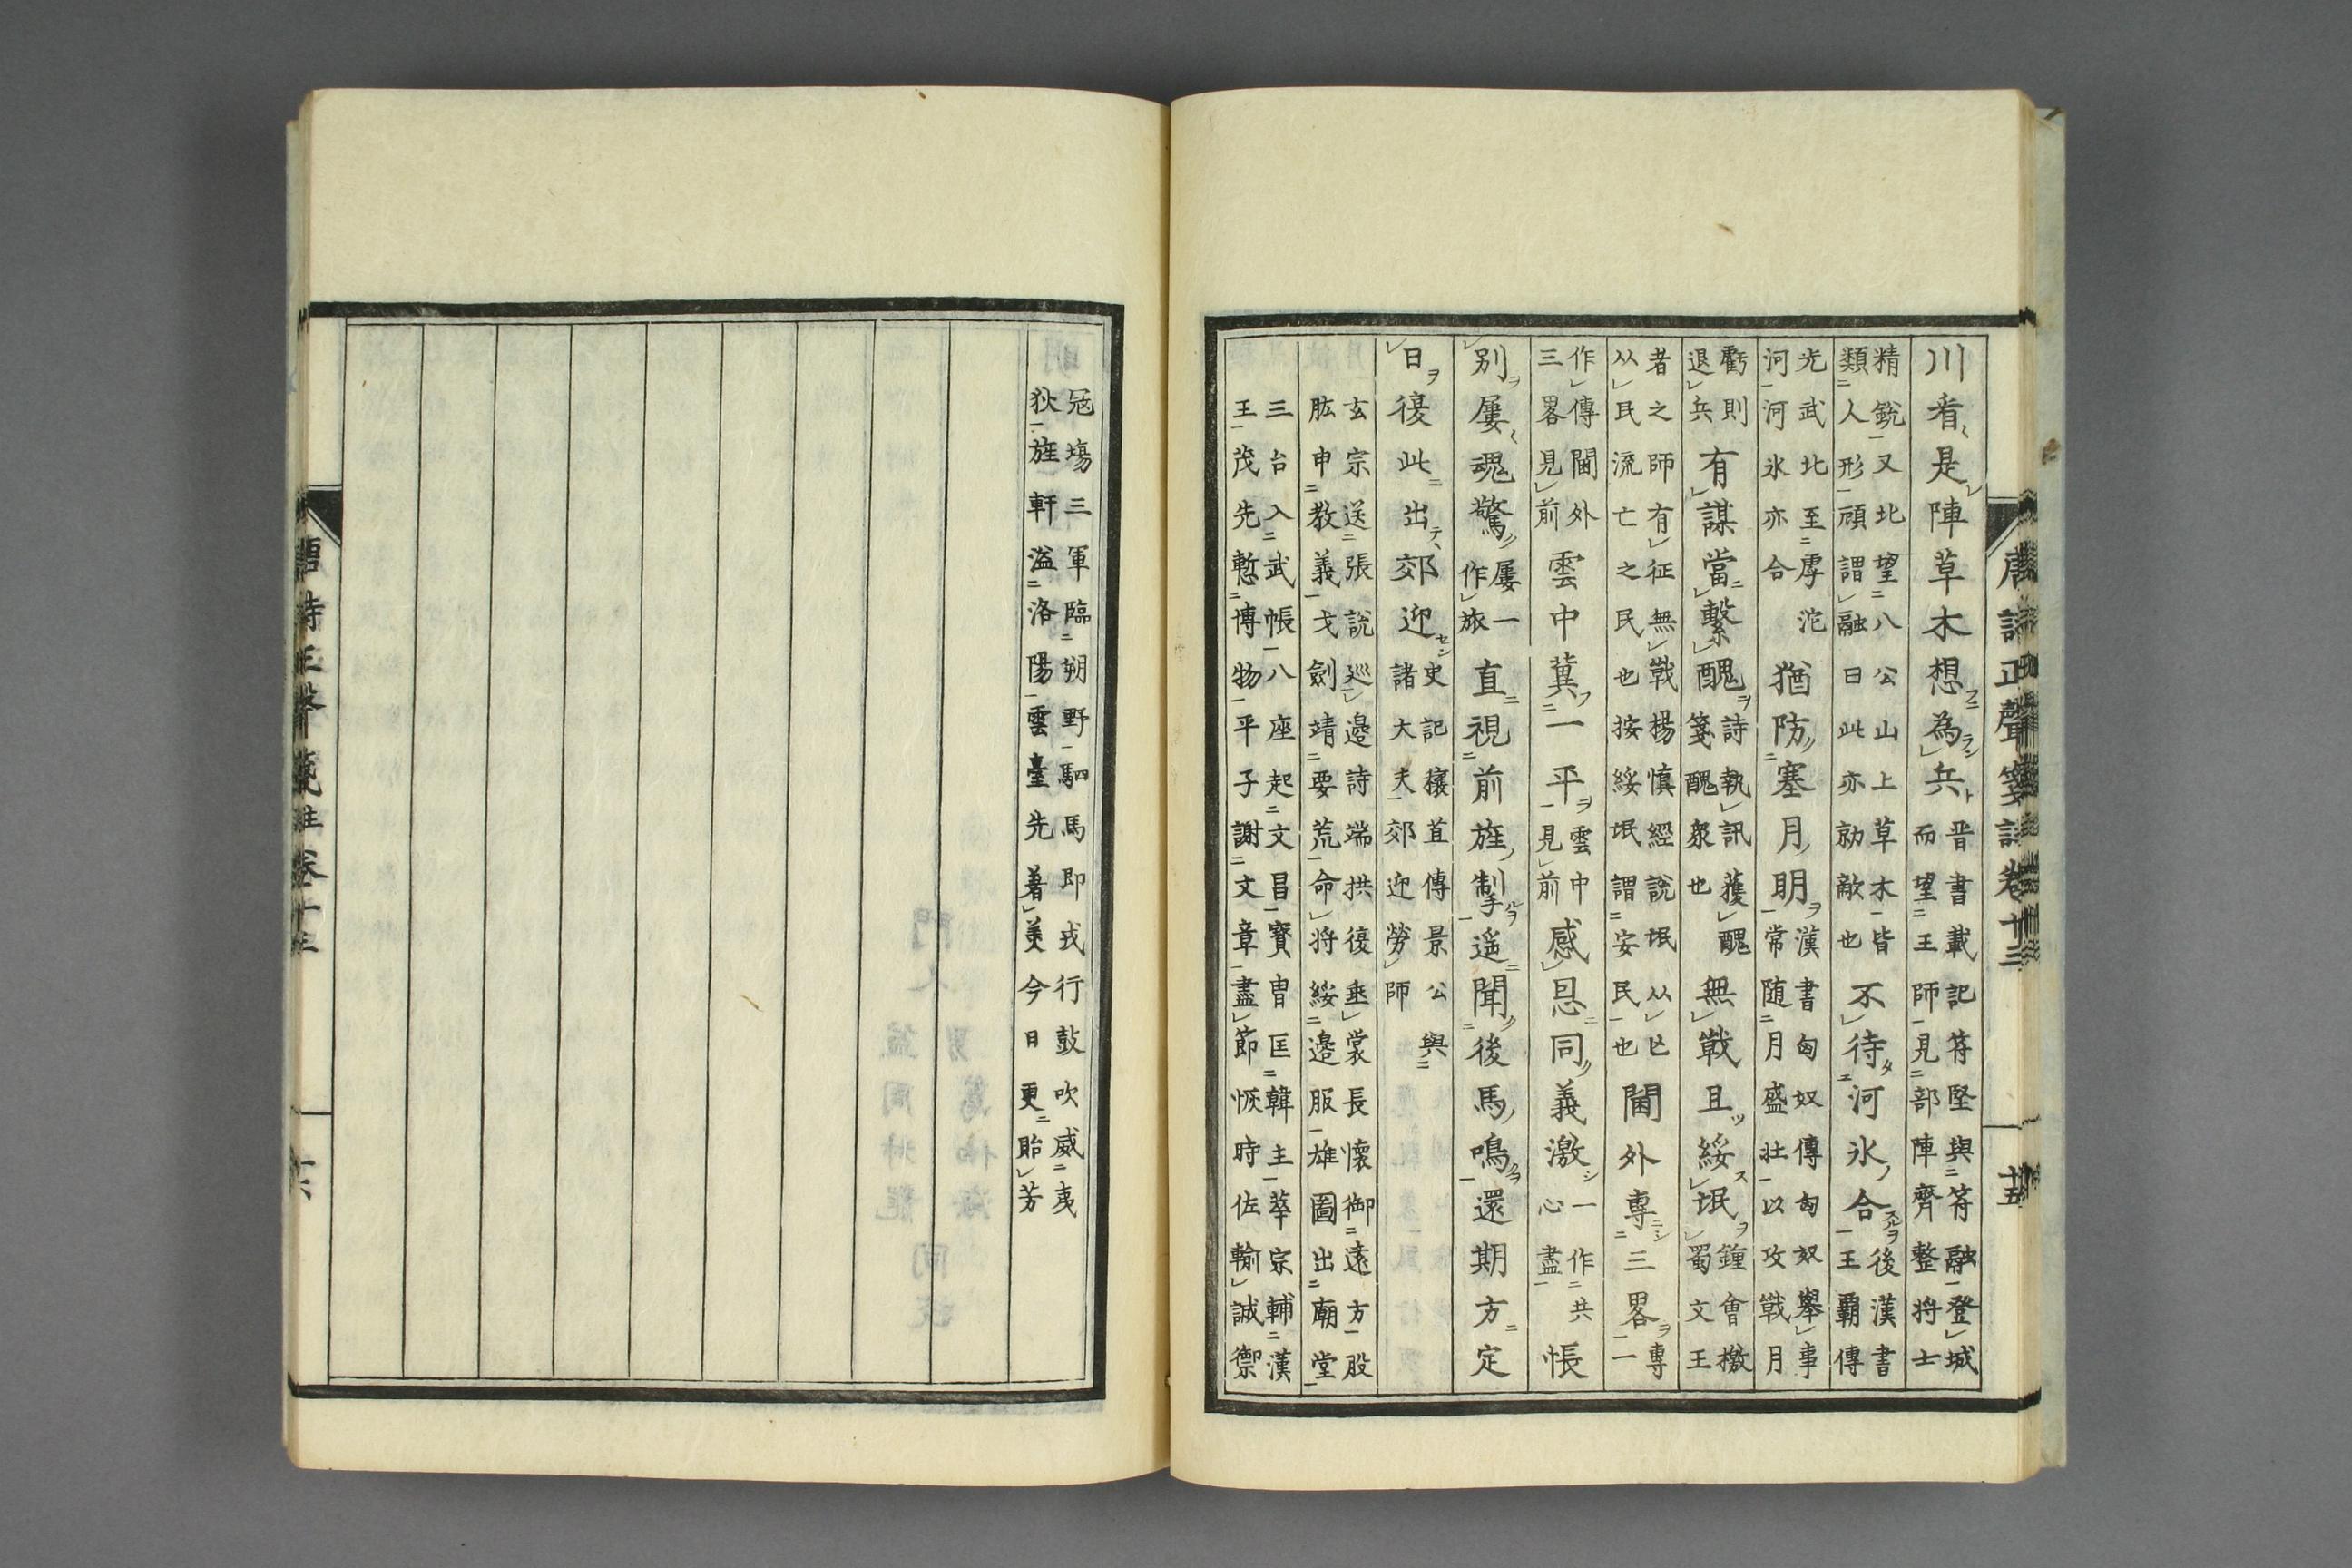 唐詩正聲箋註卷十三 十五
川看是陣草木想為兵晋書載記苻堅與苻融登城而望王師見部陣齊整將士
精銳又北望八公山上草木皆類人形頋謂融曰此亦勍敵也不待河氷合後漢書王霸傳
光武北至虖沱河河氷亦合猶防塞月明漢書匈奴傳匈奴舉事常随月盛壮以攻戰月
虧則退兵有謀當繫醜詩執訊獲醜箋醜衆也無戰且綏氓鐘會檄蜀文王
者之師有征無戰楊慎經說氓从亡从民流亡之民也按綏氓謂安民也閫外專三畧專一
作傳閫外三畧見前雲中冀一平雲中見前感恩同義激一作共心盡悵
別屢魂驚屢一作旅直視前旌掣遥聞後馬鳴還期方定
日復此出郊迎史記穰苴傳景公與諸大夫郊迎勞師
玄宗送張說巡邊詩端拱復垂裳長懷御遠方股
肱申教義戈劍靖要荒命将綏邊服雄圖出廟堂
三台入武帳八座起文昌寳胄匡韓主華宗輔漢
王茂先慙博物平子謝文章盡節恢時佐輸誠禦
冦塲三軍臨朔野駟馬即戎行鼓吹威夷
狄旌軒溢洛陽雲臺先著美今日更貽芳
唐詩正聲箋註卷十三 十六